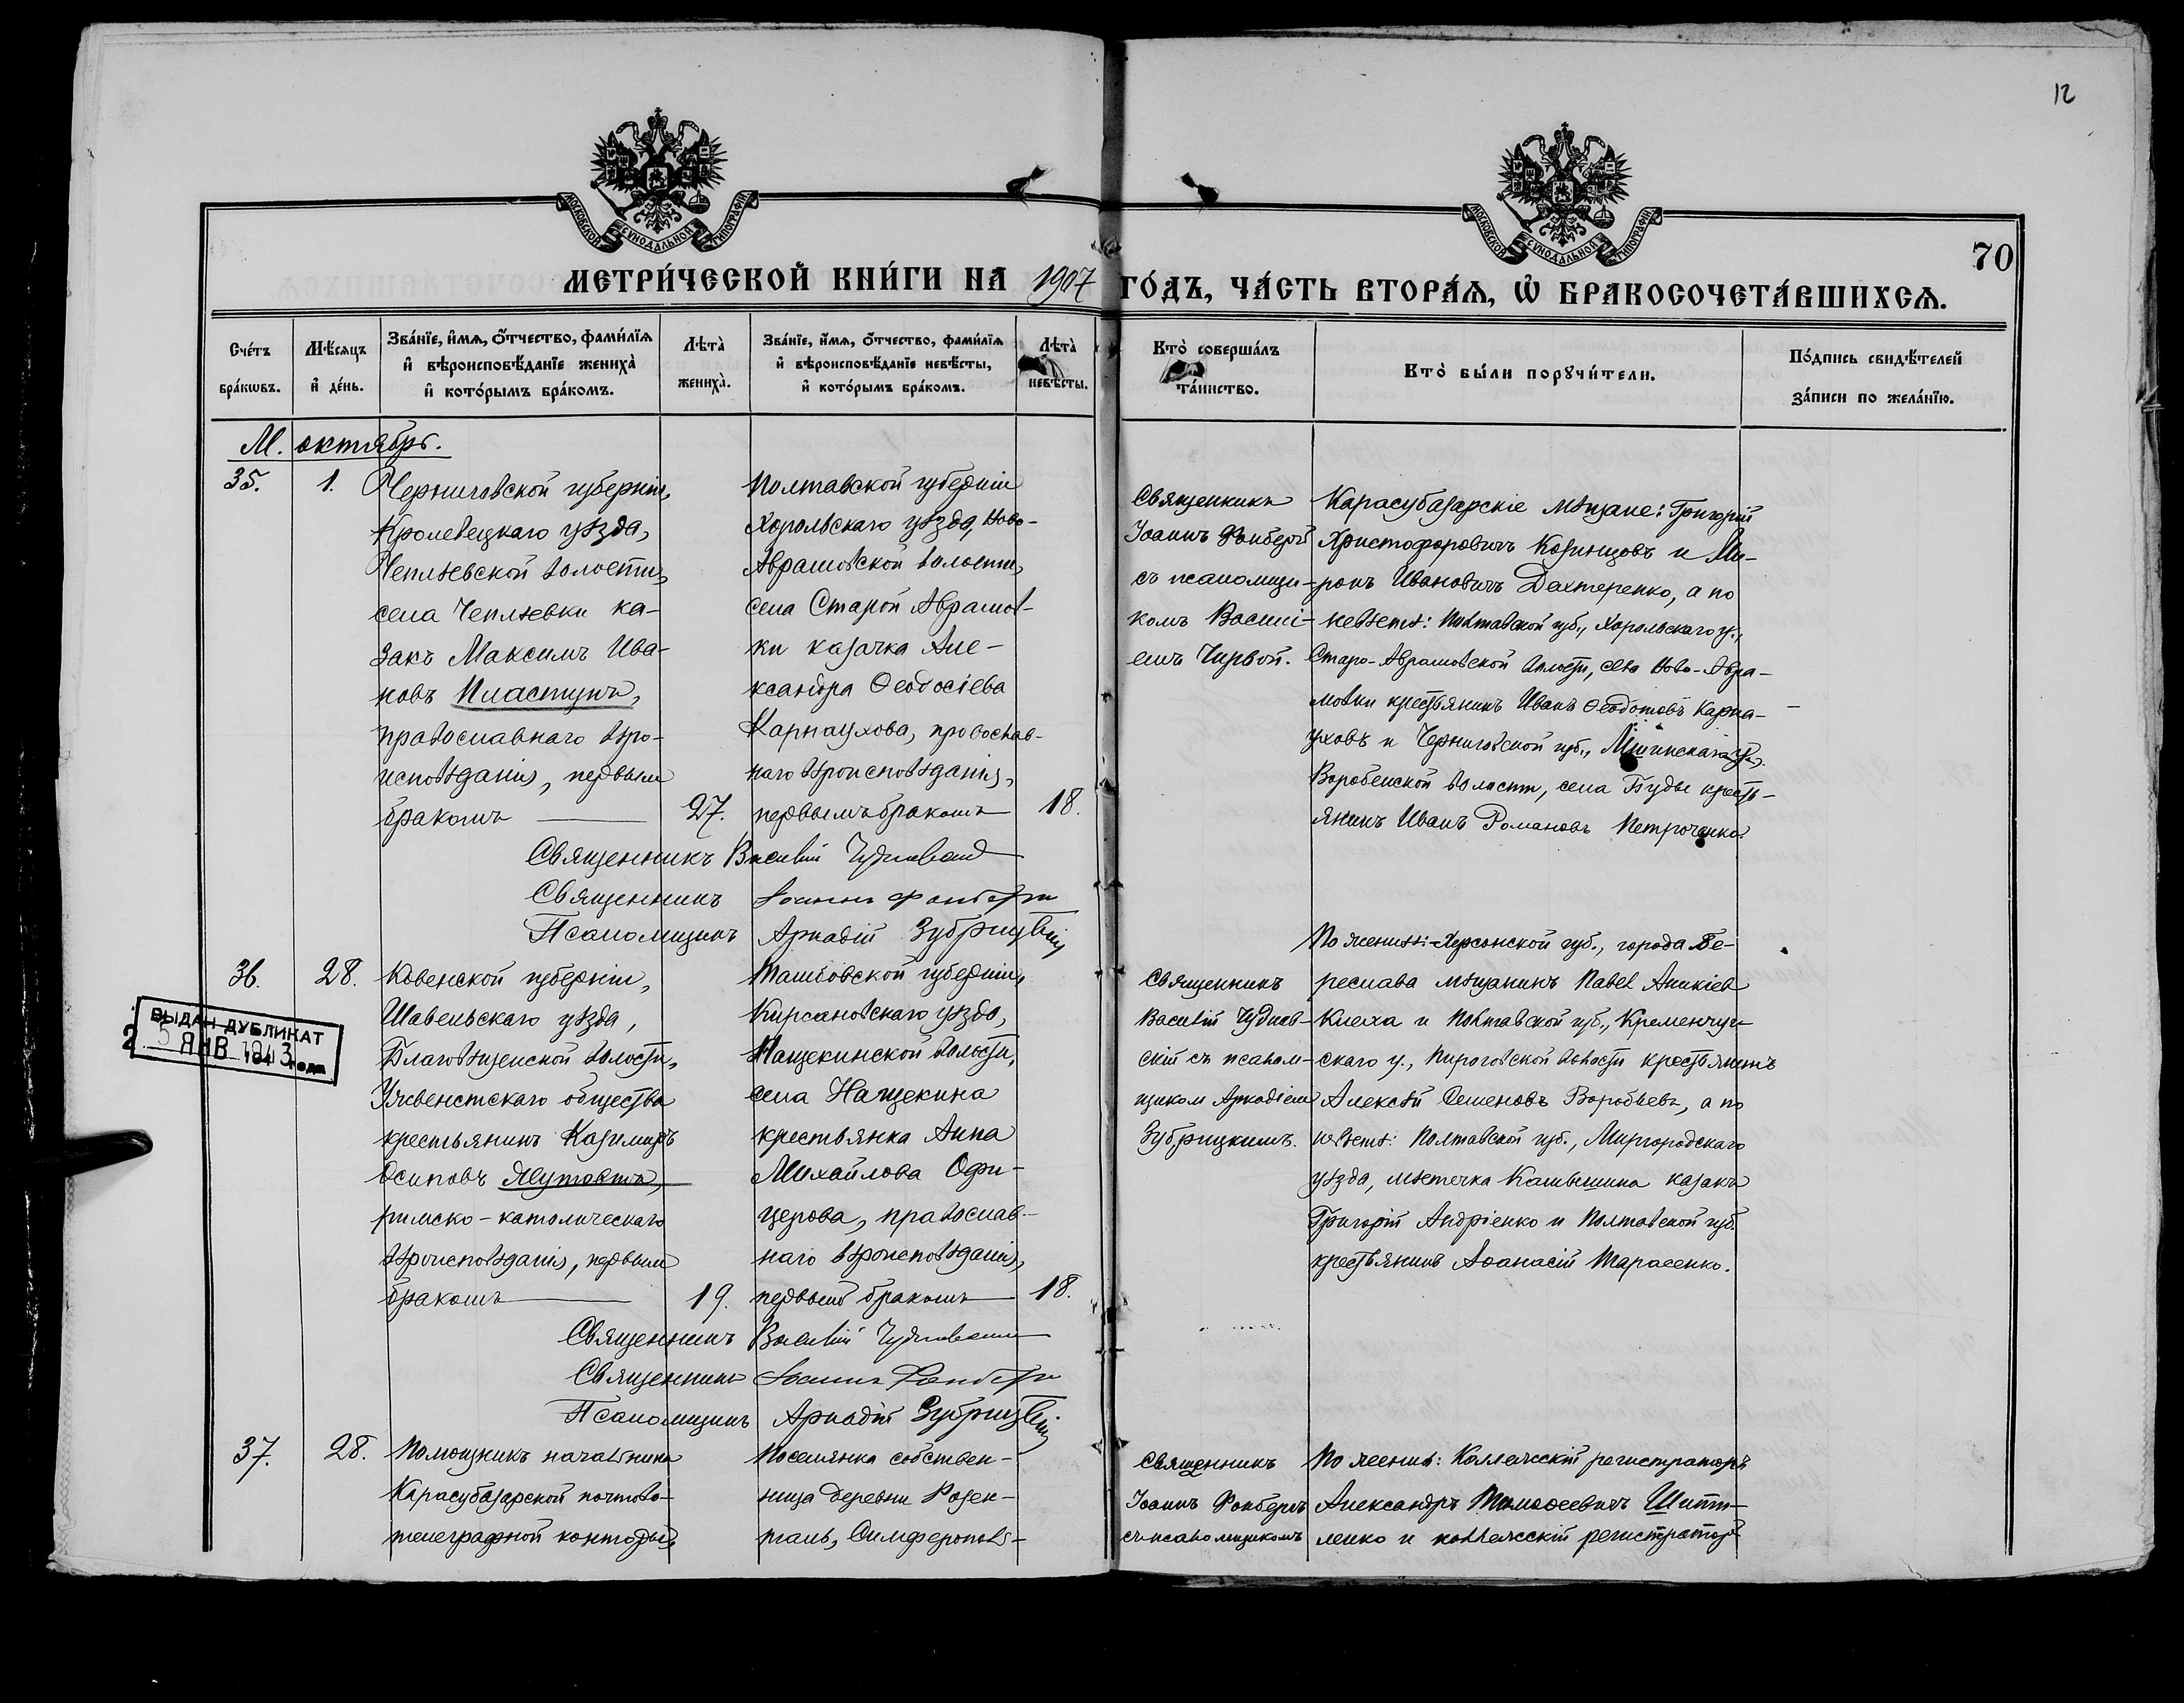 12
МОСКОВСКОЙ СѴНОДАЛЬНОЙ ТИПОГРАФІИ
МОСКОВСКОЙ СѴНОДАЛЬНОЙ ТИПОГРАФІИ
70
МЕТРИ́ЧЕСКОЙ КНИ́ГИ НА 1907 ГО́ДЪ, ЧА́СТЬ ВТОРА́Ѧ, Ѡ҆ БРАКОСОЧЕТА́ВШИХСѦ.
Сче́тъ
бра́кѡвъ.
Мѣ́сяцъ
и҆ де́нь.
Зва́нїе, и҆́мѧ, ѻ҆́тчество, фами́лїѧ
и҆ вѣроисповѣ́данїе жениха̀
и҆ кото́рымъ бра́комъ.
Лѣта̀
жениха̀.
Зва́нїе, и҆́мѧ, ѻ҆́тчество, фами́лїѧ
и҆ вѣроисповѣ́данїе невѣ́сты,
и҆ кото́рымъ бра́комъ.
Лѣта̀
невѣ́сты.
Кто̀ соверша́лъ
та́инство.
Кто̀ бы́ли порꙋчи́тели.
По́дпись свидѣ́телей
за́писи по жела́нїю.
М. октябрь.
35.
1.
Черниговской губерніи,
Кролевецкаго уѣзда,
Чеплѣевской волости,
села Чеплѣевки ка-
закъ Максимъ Ива-
новъ Пластунъ,
православнаго вѣро-
исповѣданія, первымъ
бракомъ
27.
Полтавской губерніи
Хорольскаго уѣзда, Ново-
Аврамовской волости,
села Старой Аврамов-
ки казачка Але-
ксандра Ѳеодосіева
Карнаухова, православ-
наго вѣроисповѣданія,
первымъ бракомъ
18.
Священникъ
Іоаннъ Фонбергъ
съ псаломщи-
комъ Василі-
емъ Чирвой.
Карасубазарскіе мѣщане: Григорій
Христофоровичъ Казинцовъ и Ми-
ронъ Ивановичъ Дахтеренко, а по
невѣстѣ: Полтавской губ., Хорольскаго у.,
Старо-Аврамовской волости, села Ново-Авра-
мовки крестьянинъ Иванъ Ѳеодотовъ Карна-
уховъ и Черниговской губ., Мглинскаго у.
Воробеинской волости, села Гуды кресть-
янинъ Иванъ Романовъ Петроченко.
Священникъ Василій Чудновскій
Священникъ Іоаннъ Фонбергъ
Псаломщикъ Аркадій Зубрицкій
36.
28.
Ковенской губерніи,
Шавельскаго уѣзда,
Благовѣщенской волости,
общества
крестьянинъ Казимиръ
Осиповъ Якутовичъ,
римско-католическаго
вѣроисповѣданія, первымъ
бракомъ
19.
Тамбовской губерніи,
Кирсановскаго уѣзда,
Нащекинской волости,
села Нащекина
крестьянка Анна
Михайлова Офи-
церова, православ-
наго вѣроисповѣданія,
первымъ бракомъ
18.
Священникъ
Василій Чуднов-
скій съ псалом-
щиком Аркадіемъ
Зубрицкимъ.
По женихѣ: Херсонской губ., города Бе-
реслава мѣщанинъ Павел Аникіев
Клеха и Полтавской губ., Кременчуг-
скаго у., Пироговской волости крестьянинъ
Алексѣй Семеновъ Воробьевъ, а по
невѣстѣ: Полтавской губ., Миргородскаго
уѣзда, мѣстечка Камышина казакъ
Григорій Андріенко и Полтавской губ.
крестьянинъ Аѳанасій Тарасенко.
ВЫДАН ДУБЛИКАТ
25 ЯНВ 1943 года
Священникъ Василій Чудновскій
Священникъ Іоаннъ Фонбергъ
Псаломщикъ Аркадій Зубрицкій
37.
28.
Помощникъ начальника
Карасубазарской почтово-
телеграфной конторы,
Поселянка собствен-
ница деревни Розен-
таль, Симферополь-
Священникъ
Іоаннъ Фонбергъ
съ псаломщикомъ
По женихѣ: Коллежскій регистраторъ
Александръ Тимоѳеевичъ Шипи-
ленко и коллежскій регистраторъ